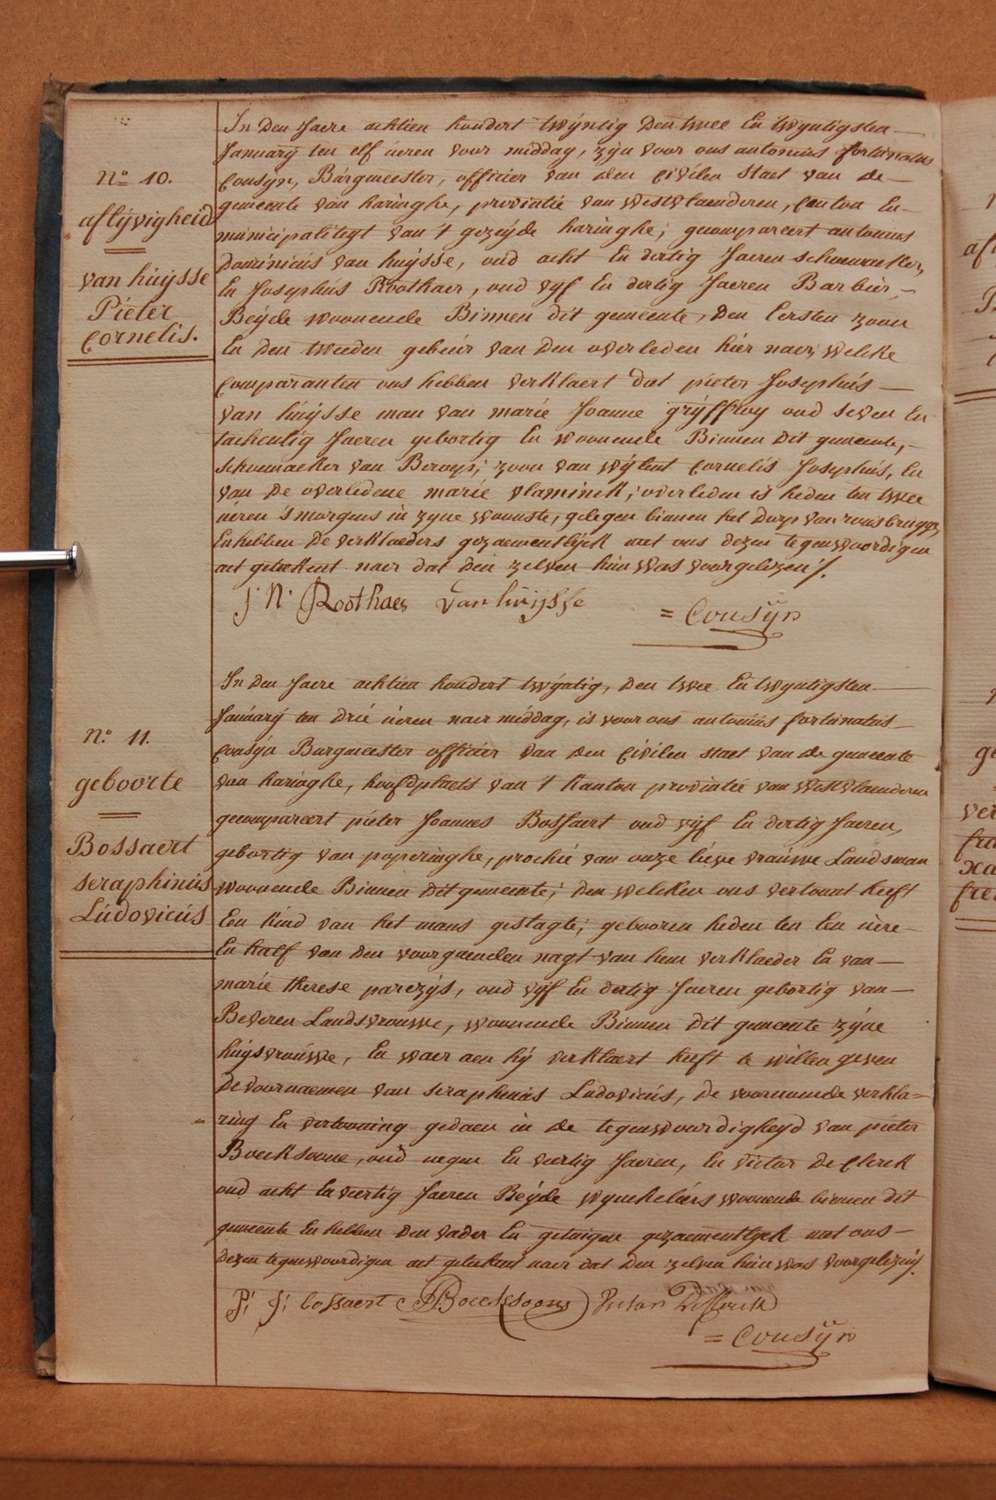 N.º 10.
aflijvigheid
van huijsse
Pieter
Cornelis.
In den Jaere achtien hondert twijntig den twee En twyntigsten
January ten elf ueren voor middag, zyn voor ons antonius fortunatus
Cousyn, Burgmeester, officier van den Civilen Staet van de
gemeente van haringhe, provintie van westvlaenderen, Canton En
municipaliteyt van 't gezeyde haringhe; gecompareert antonius
Dominicus van huysse, oud acht En dertig Jaeren schoenmaeker,
En Josephus Roothaer, oud vyf En dertig Jaeren Barbier,
Beyde woonende Binnen dit gemeente, Den Eersten zoon
En den tweeden gebeur van den overleden hier naer, welcke
Comparanten ons hebben verklaert dat pieter Josephus
van huysse man van marie Joanne gryffroy oud seven En
tachentig Jaeren gebortig En woonende Binnen dit gemeente,
schoenmaeker van Beroep; zoon van wylent Cornelis Josephus, En
van De overledene marie vlaminck; overleden is heden ten twee
ueren 's morgens in zyne wooniste, gelegen binnen het dorp van rousbrugge
En hebben De verklaeders gezaementlyck met ons dezen tegenwoordigen
act geteekent naer dat den zelven hun was voorgelezen ./.
J: N: Roothaer van huijsse
= Cousÿn
n.º 11.
geboorte
Bossaert
seraphinus
Ludovicus
In den Jaere achtien hondert twyntig, den twee En twyntigsten
January ten drie ueren naer middag, is voor ons antonius fortunatus
Cousyn Burgmeester officier van den Civilen staet van de gemeente
van haringhe, hoofdplaets van 't kanton provintie van westvlaenderen
gecompareert pieter Joannes Bossaert oud vyf En dertig Jaeren,
gebortig van poperinghe, prochie van onze lieve vrauwe Landsman
woonende Binnen dit gemeente; den welcken ons vertount heeft
Een kind van het mans geslagte; gebooren heden ten Een uere
En half van den voorgaenden nagt van hem verklaeder En van
marie therese parezys, oud vyf En dertig Jaeren gebortig van
Beveren Landsvrouwe, woonende Binnen dit gemeente zyne
huysvrouwe, En waer aen hy verklaert heeft te willen geven
de voornaemen van seraphinus Ludovicus, de voornoemde verkla=
ring En vertooning gedaen in de tegenwoordigheyd van pieter
Boecksoone, oud negen En veertig Jaeren, En victor De Clerck
oud acht En veertig Jaeren Beyde wynckeliers woonende binnen dit
gemeente En hebben den vader En getuigen gezaementlyck met ons
dezen tegenwoordigen act geteekent naer dat den zelven hun was voorgelezen ./.
P: J: bossaert P Boecksoone Victor De Clerck
= Cousÿn